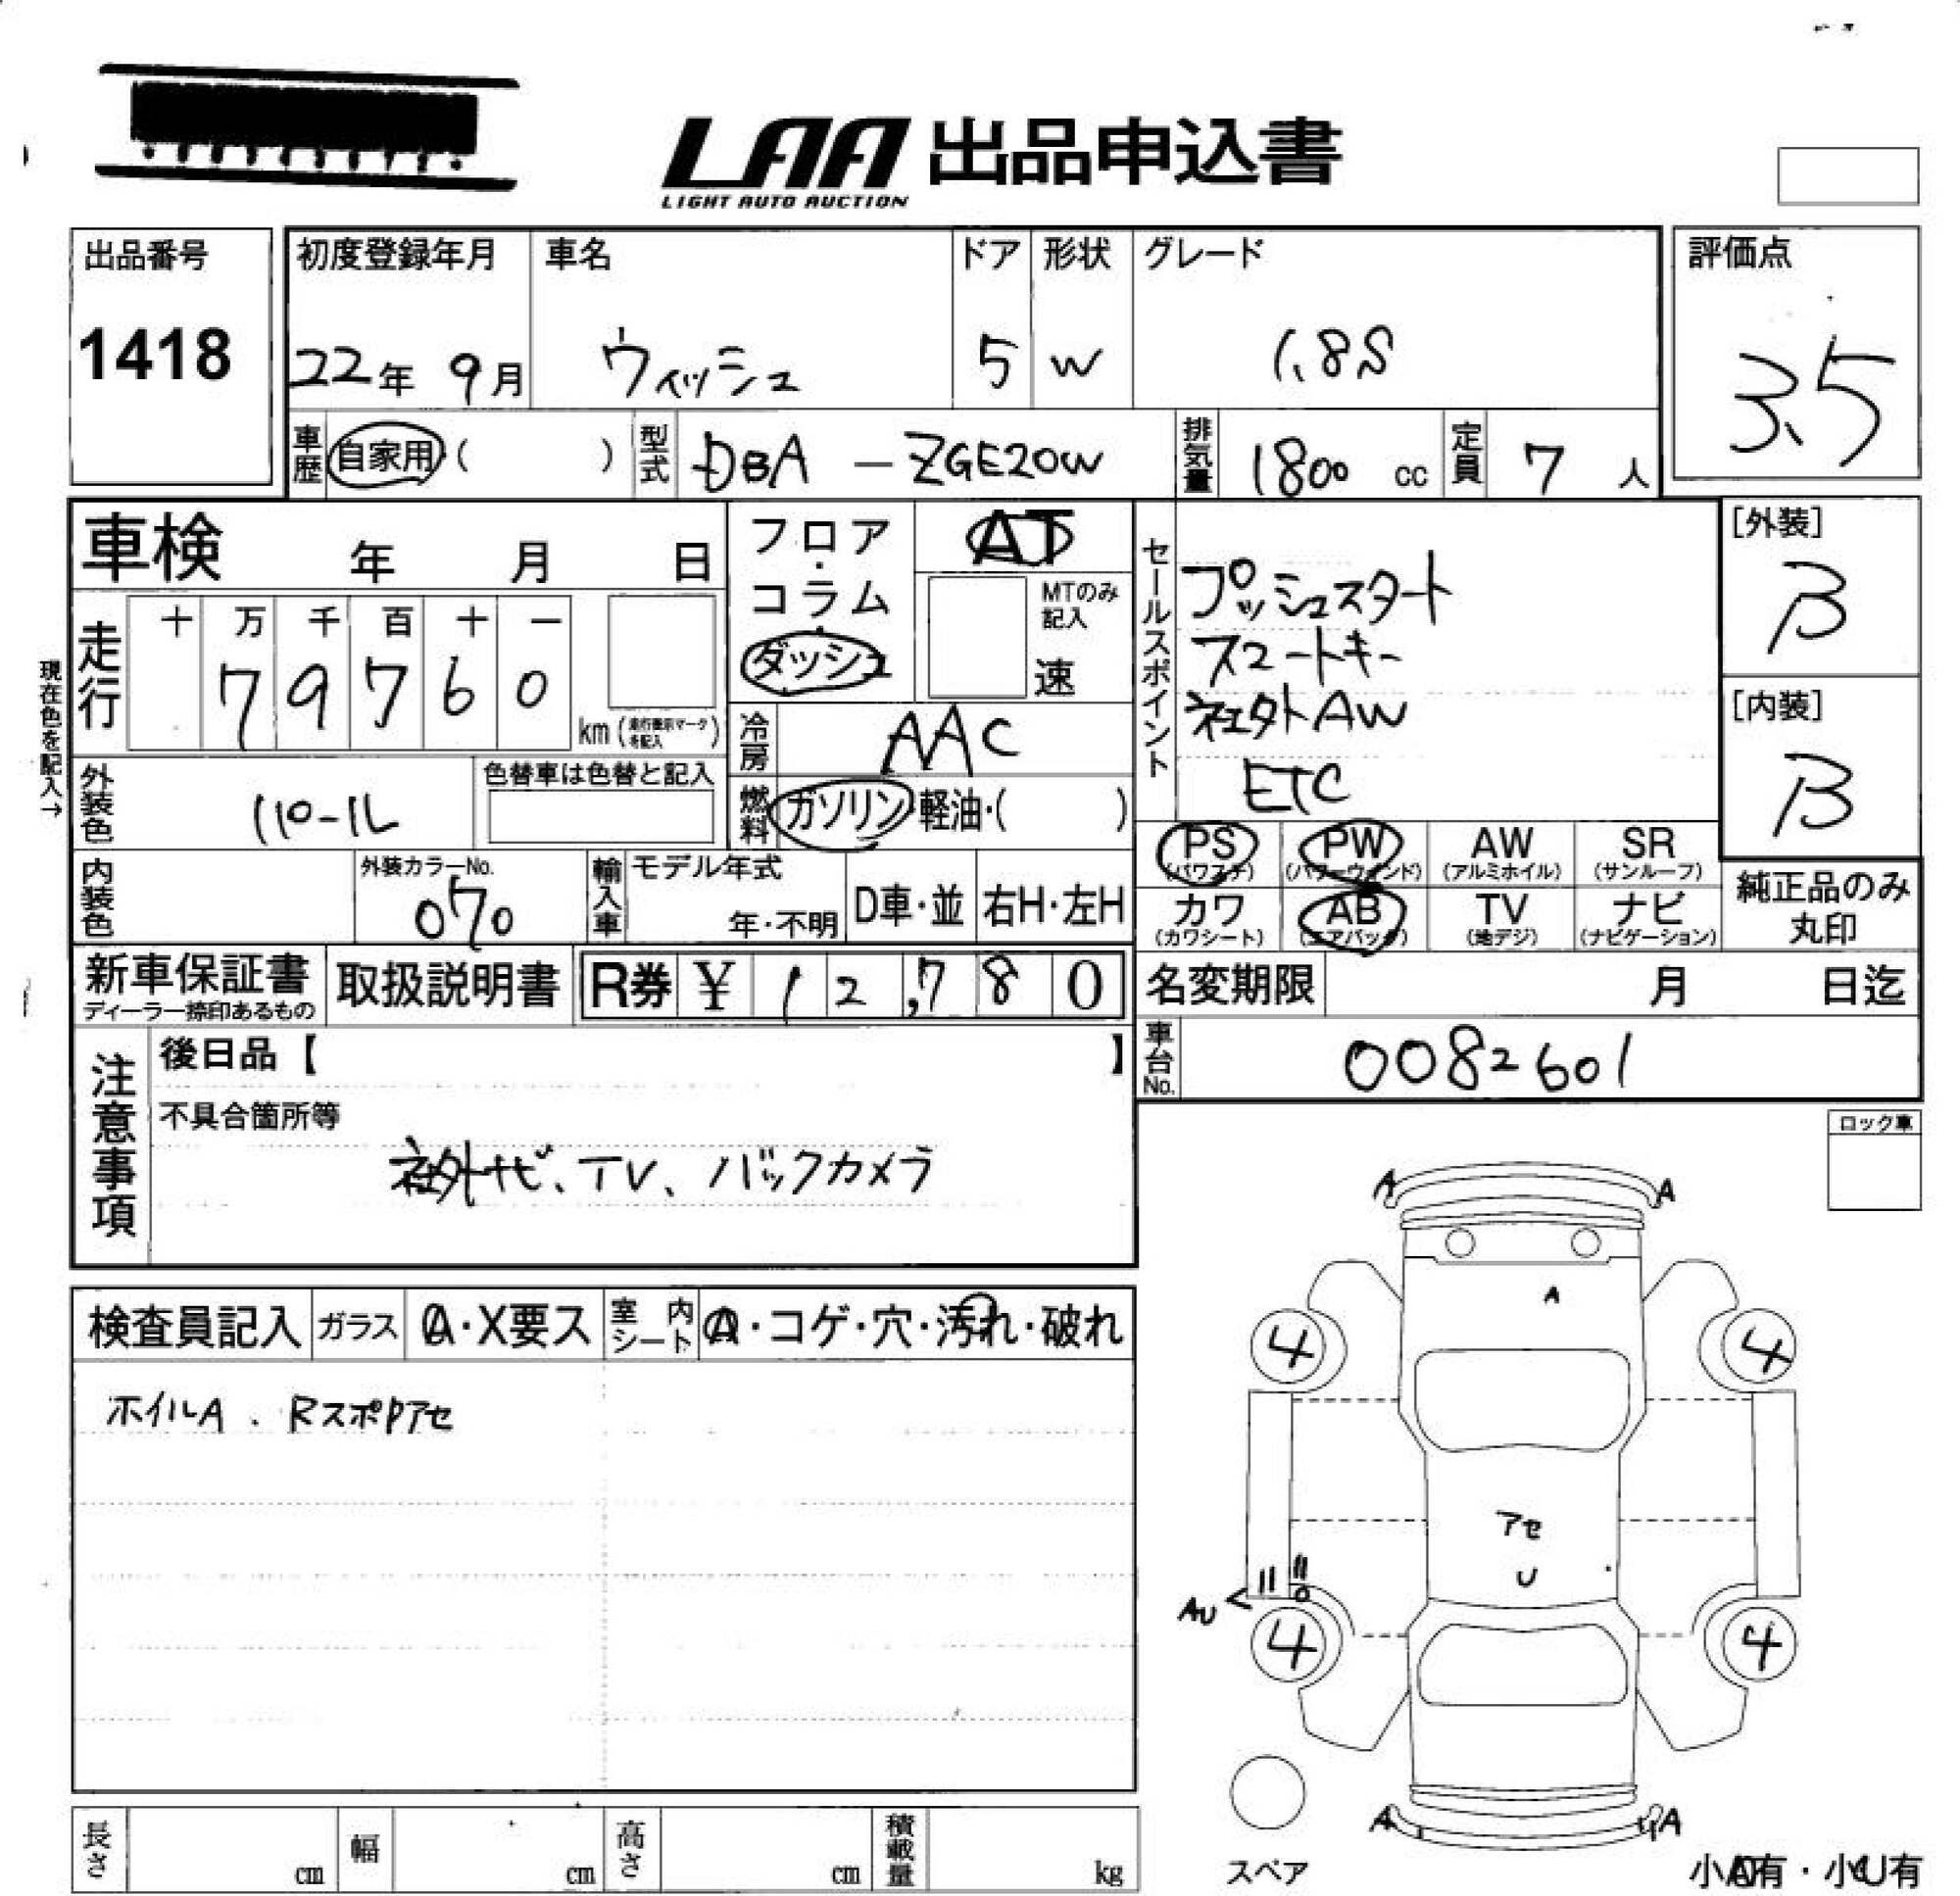 LAA 出品申込書
LIGHT AUTO AUCTION
出品番号 初度登録年月 車名 ドア 形状 グレード 評価点
1418 22年 9月 ウィッシュ 5 W 1.8S 3.5
車歴 自家用 ( ) 型式 DBA - ZGE20W 排気量 1800 cc 定員 7 人
車検 年 月 日
フロア・
コラム・
ダッシュ
AT
MTのみ
記入
速
現在色を記入→
走行 十 万 千 百 十 一
79760
km (走行表示マークを記入)
冷房 AAC
外装色 パール 色替車は色替と記入
燃料 ガソリン・軽油・( )
内装色 外装カラーNo. 070
輸入車 モデル年式 年・不明 D車・並 右H・左H
セールスポイント
プッシュスタート
スマートキー
社外AW
ETC
[外装]
B
[内装]
B
PS (パワステ) PW (パワーウインド) AW (アルミホイル) SR (サンルーフ)
カワ (カワシート) AB (エアバック) TV (地デジ) ナビ (ナビゲーション)
純正品のみ
丸印
新車保証書 取扱説明書 R券 ¥ 12,780
ディーラー捺印あるもの
名変期限 月 日迄
車台No. 0082601
注意事項
後日品【 】
不具合箇所等
社外ナビ、TV、バックカメラ
ロック車
検査員記入 ガラス A・X要ス 室内シート A・コゲ・穴・汚れ・破れ
ホイルA . Rスポアセ
A A
A
4 4
アセ
U
AU
4 4
A A
スペア
小A有・小U有
長さ cm 幅 cm 高さ cm 積載量 kg